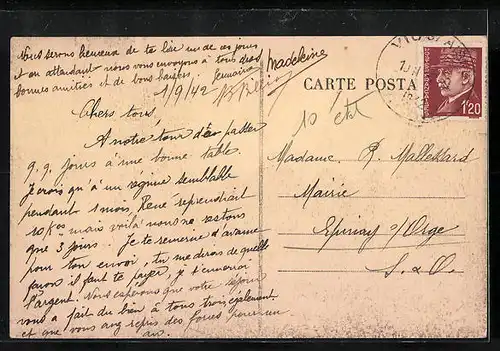 Nous serons heureux de te lire un de ces jours
et en attendant nous vous envoyons à tous des
bonnes amitiés et de bons baisers. Germaine
Madeleine
1/9/42
Chers tous,
A notre tour d'en passer
q.q. jours à une bonne table.
Je crois qu'à un régime semblable
pendant 1 mois, René reprendrait
10 kos mais voilà nous ne restons
que 3 jours. Je te remercie d'avance
pour ton envoi, tu me diras de quelle
façon il faut te payer, je t'enverrai
l'argent. Nous espérons que votre séjour
vous a fait du bien à tous trois également
et que vous avez repris des forces pour un
an.
CARTE POSTA
VIC S/
1,20
10 cht
Madame R. Mallessard
Mairie
Epinay s/ Orge
S. & O.